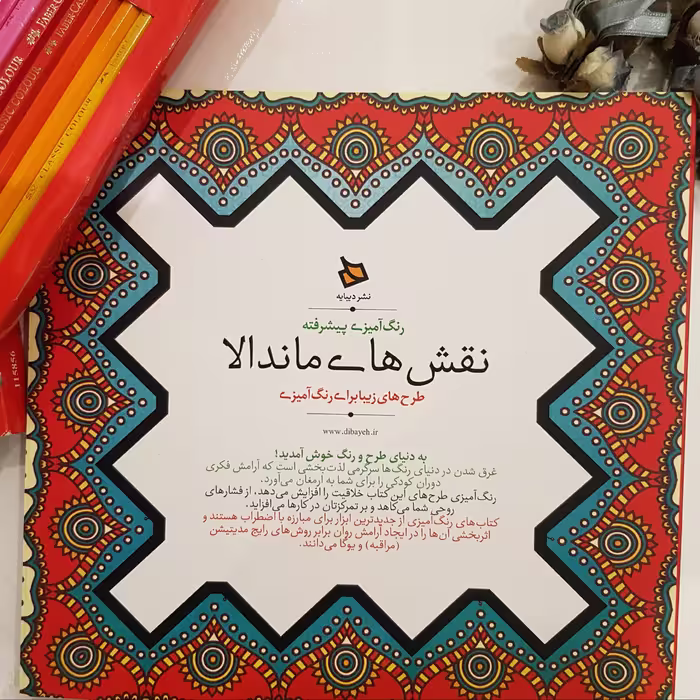 FABER-CASTELL
CLASSIC COLOUR
CLASSIC COLOUR
115856
نشر دیبایه
رنگ‌آمیزی پیشرفته
نقش‌های ماندالا
طرح‌های زیبا برای رنگ‌آمیزی
www.dibayeh.ir
به دنیای طرح و رنگ خوش آمدید!
غرق شدن در دنیای رنگ‌ها سرگرمی لذت‌بخشی است که آرامش فکری
دوران کودکی را برای شما به ارمغان می‌آورد.
رنگ‌آمیزی طرح‌های این کتاب خلاقیت را افزایش می‌دهد، از فشارهای
روحی شما می‌کاهد و بر تمرکزتان در کارها می‌افزاید.
کتاب‌های رنگ‌آمیزی از جدیدترین ابزار برای مبارزه با اضطراب هستند و
اثربخشی آن‌ها را در ایجاد آرامش روان برابر روش‌های رایج مدیتیشن
(مراقبه) و یوگا می‌دانند.